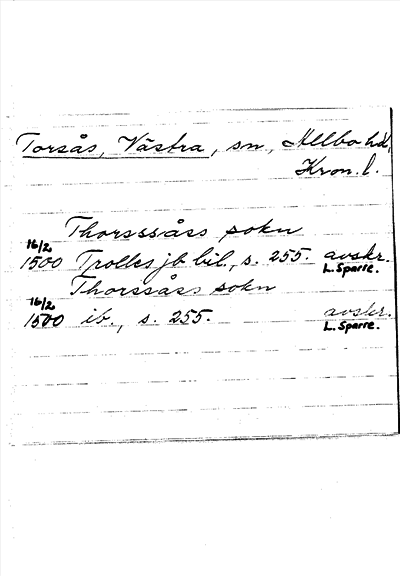 Torsås, Västra, sn., Allbo hd,
Kron. l.
Thorsssåss sokn
16/2
1500 Trolles jb bil., s. 255. avskr.
L. Sparre.
Thorssåss sokn
16/2
1500 ib., s. 255. avskr.
L. Sparre.